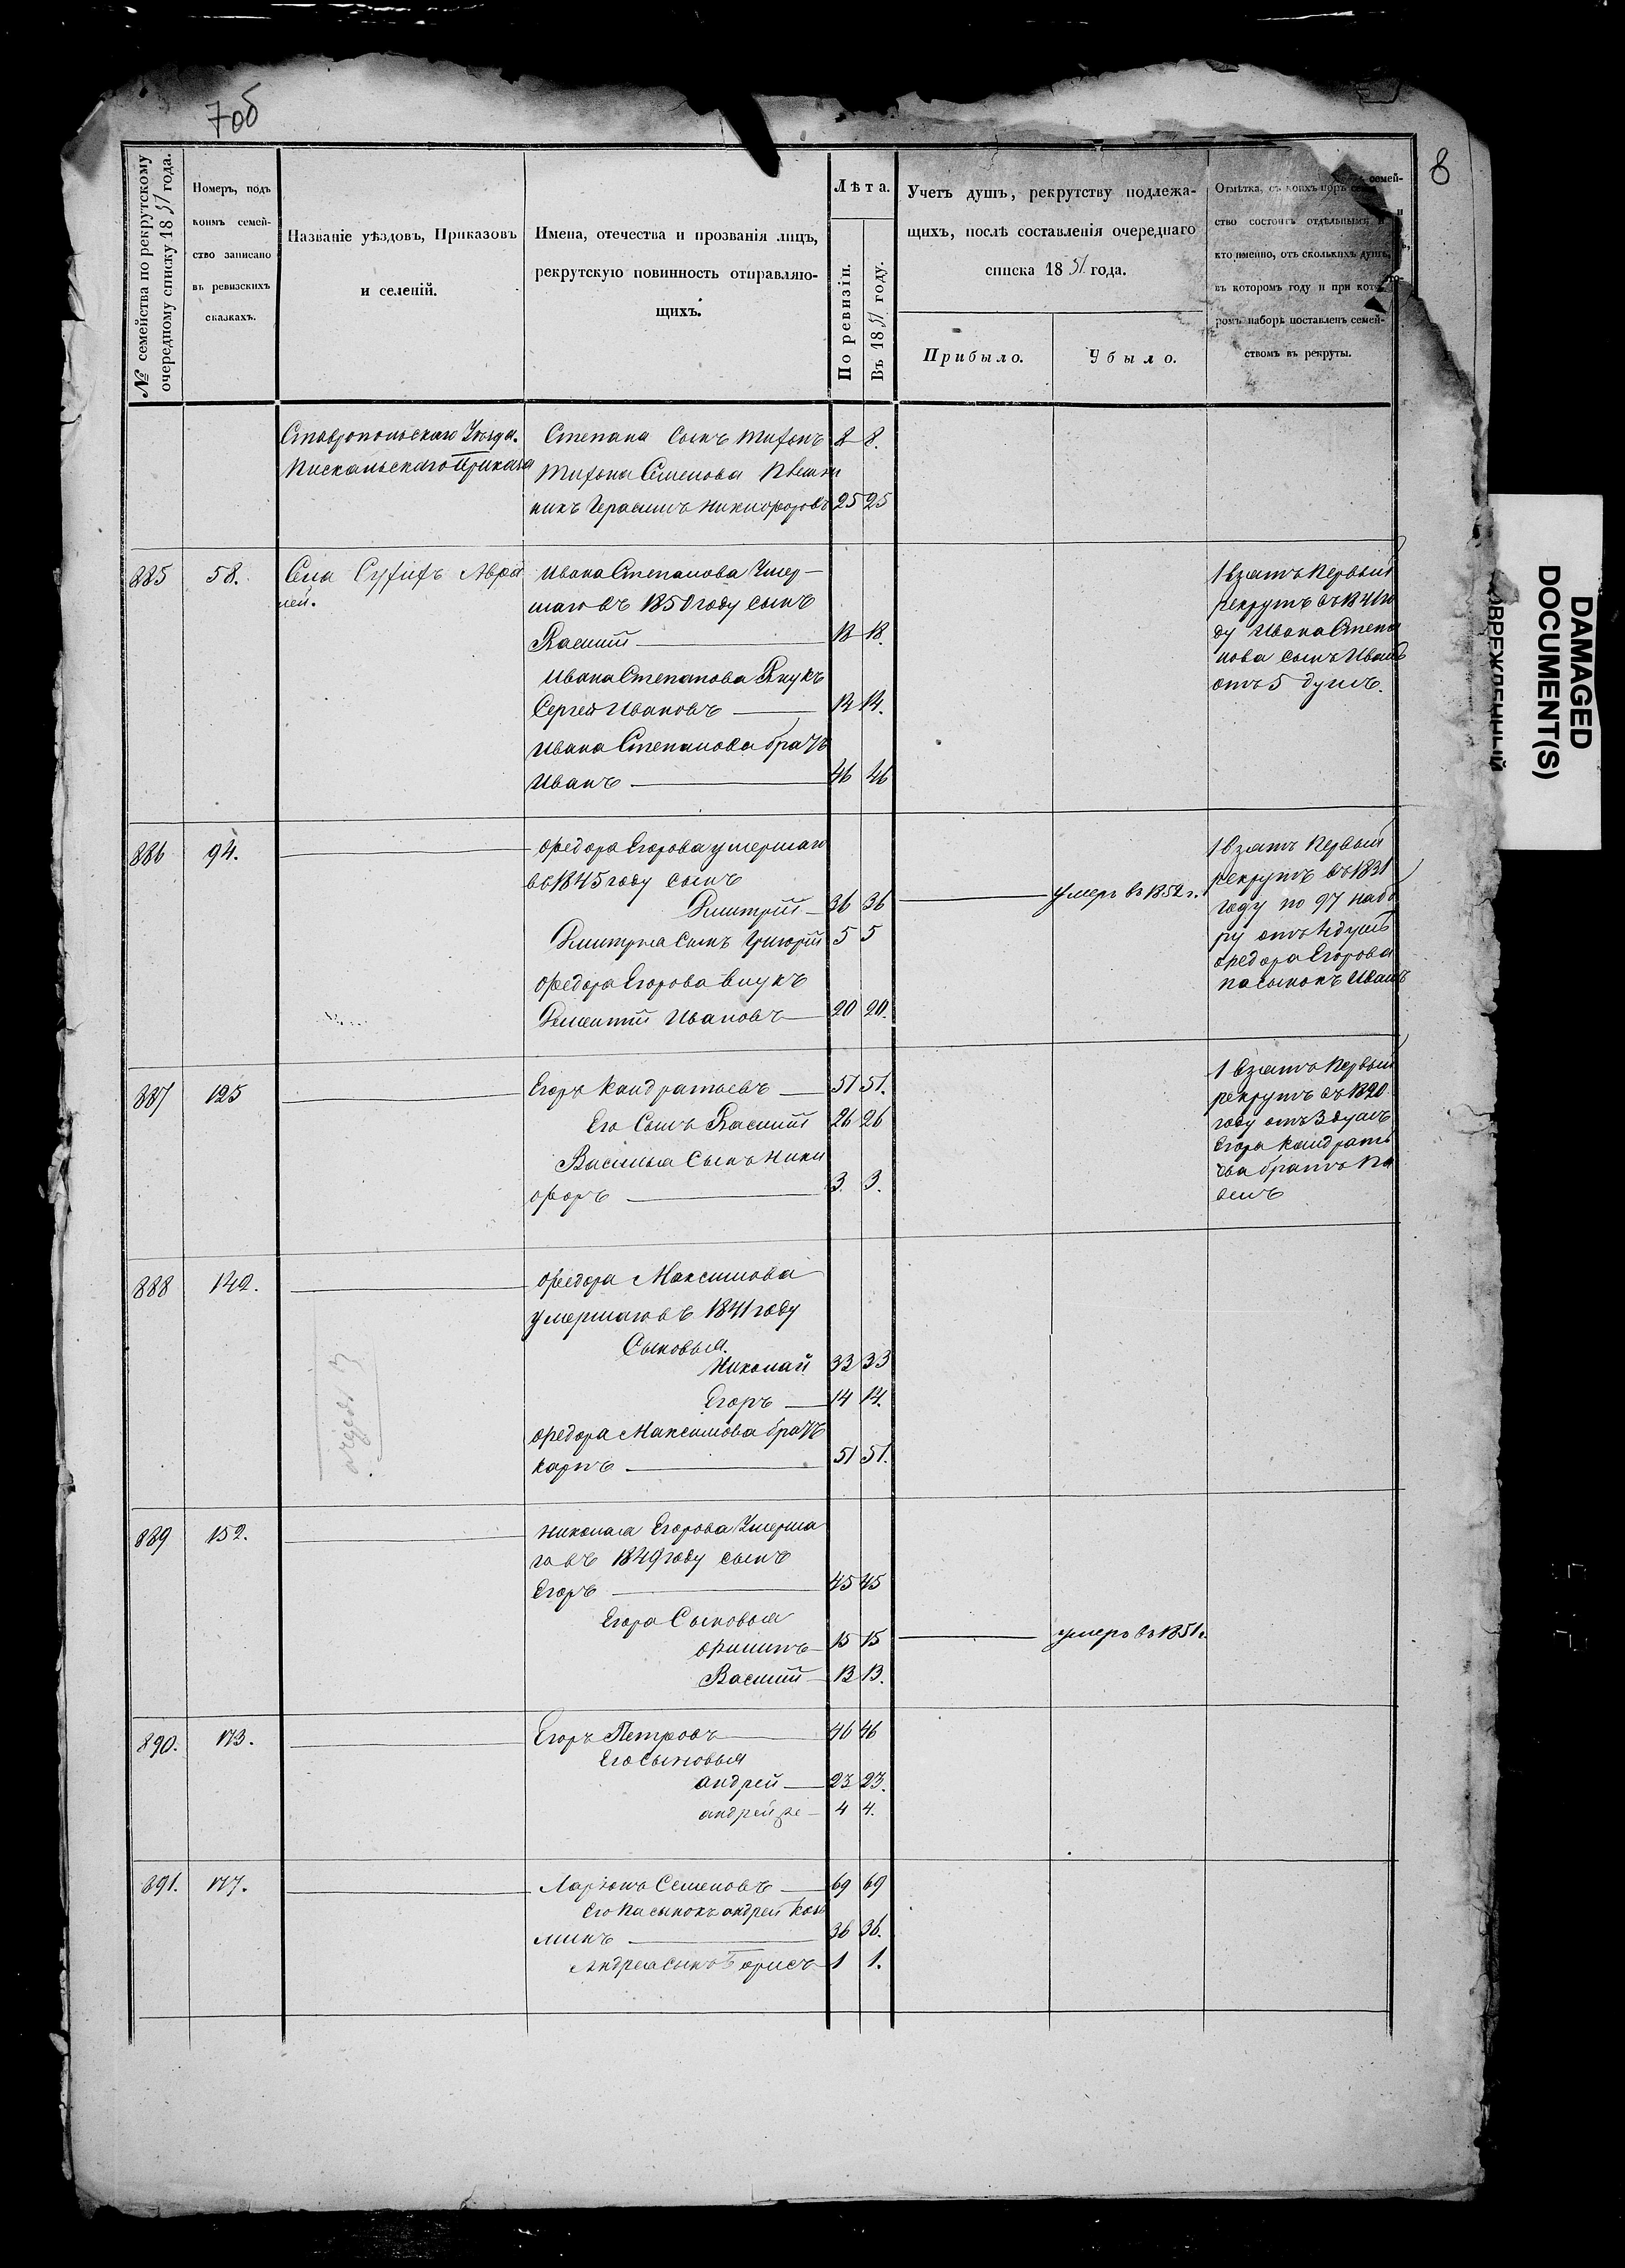 7об
8
№ семейства по рекрутскому
очередному списку 1851 года.
Номеръ, подъ
коимъ семей-
ство записано
въ ревизскихъ
сказкахъ.
Названіе уѣздовъ, Приказовъ
и селеній.
Имена, отечества и прозванія лицъ,
рекрутскую повинность отправляю-
щихъ.
Лѣта.
По ревизіи.
Въ 1851 году.
Учетъ душъ, рекрутству подлежа-
щихъ, послѣ составленія очереднаго
списка 1851 года.
Прибыло.
Убыло.
Отмѣтка, съ коихъ поръ семей-
ство состоитъ отдѣльнымъ и
кто именно, отъ сколькихъ душъ,
въ которомъ году и при кото-
ромъ наборѣ поставленъ семей-
ствомъ въ рекруты.
Ставропольскаго Уѣзда.
Пискальскаго Приказа
Степана Сынъ Тифонъ 8 8.
Тифона Семенова Племян
никъ Герасимъ Никифоровъ 25 25
885 58. Села
Ивана Степанова Умер-
шаго въ 1850 году сынъ
Василій 18 18.
Ивана Степанова Внукъ
Сергей Ивановъ 14 14.
Ивана Степанова братъ
Иванъ 46 46
1 взятъ Первый
рекрутъ въ 1841 го
ду Ивана Степа
нова сынъ Иванъ
отъ 5 душъ.
886 94.
Федора Егорова умершаго
въ 1845 году сынъ
Дмитрій 36 36 умеръ въ 1852 г.
Дмитрія Сынъ Григорій 5 5
Федора Егорова внукъ
Дементій Ивановъ 20 20.
1 взятъ Первый
рекрутъ въ 1831
году по 97 набо
ру отъ 4 душъ
Федора Егорова
пасынокъ Иванъ
887 125
Егоръ Кандратьевъ 51 51.
Его Сынъ Василій 26 26
Василья Сынъ Ники
форъ 3. 3.
1 взятъ Первый
рекрутъ въ 1820
году отъ 3 душъ
Егора Кандрать
ева братъ Па
велъ
888 142.
Федора Максимова
умершаго въ 1841 году
Сыновья.
Николай 33 33
Егоръ 14 14.
Федора Максимова братъ
Карпъ 51 51.
889 152.
Николая Егорова Умерша
го въ 1849 году сынъ
Егоръ 45 45
Егора Сыновья
Филипъ 15 15 умеръ въ 1851 г.
Василій 13 13.
890. 173.
Егоръ Петровъ 46 46
Его сыновья
Андрей 23 23.
Андрей же 4 4.
891. 177.
Ларіонъ Семеновъ 69 69
Его Пасынокъ Андрей Козь
минъ 36 36.
Андрея сынъ Борисъ 1 1.
DAMAGED
DOCUMENT(S)
ПОВРЕЖДЕННЫЙ